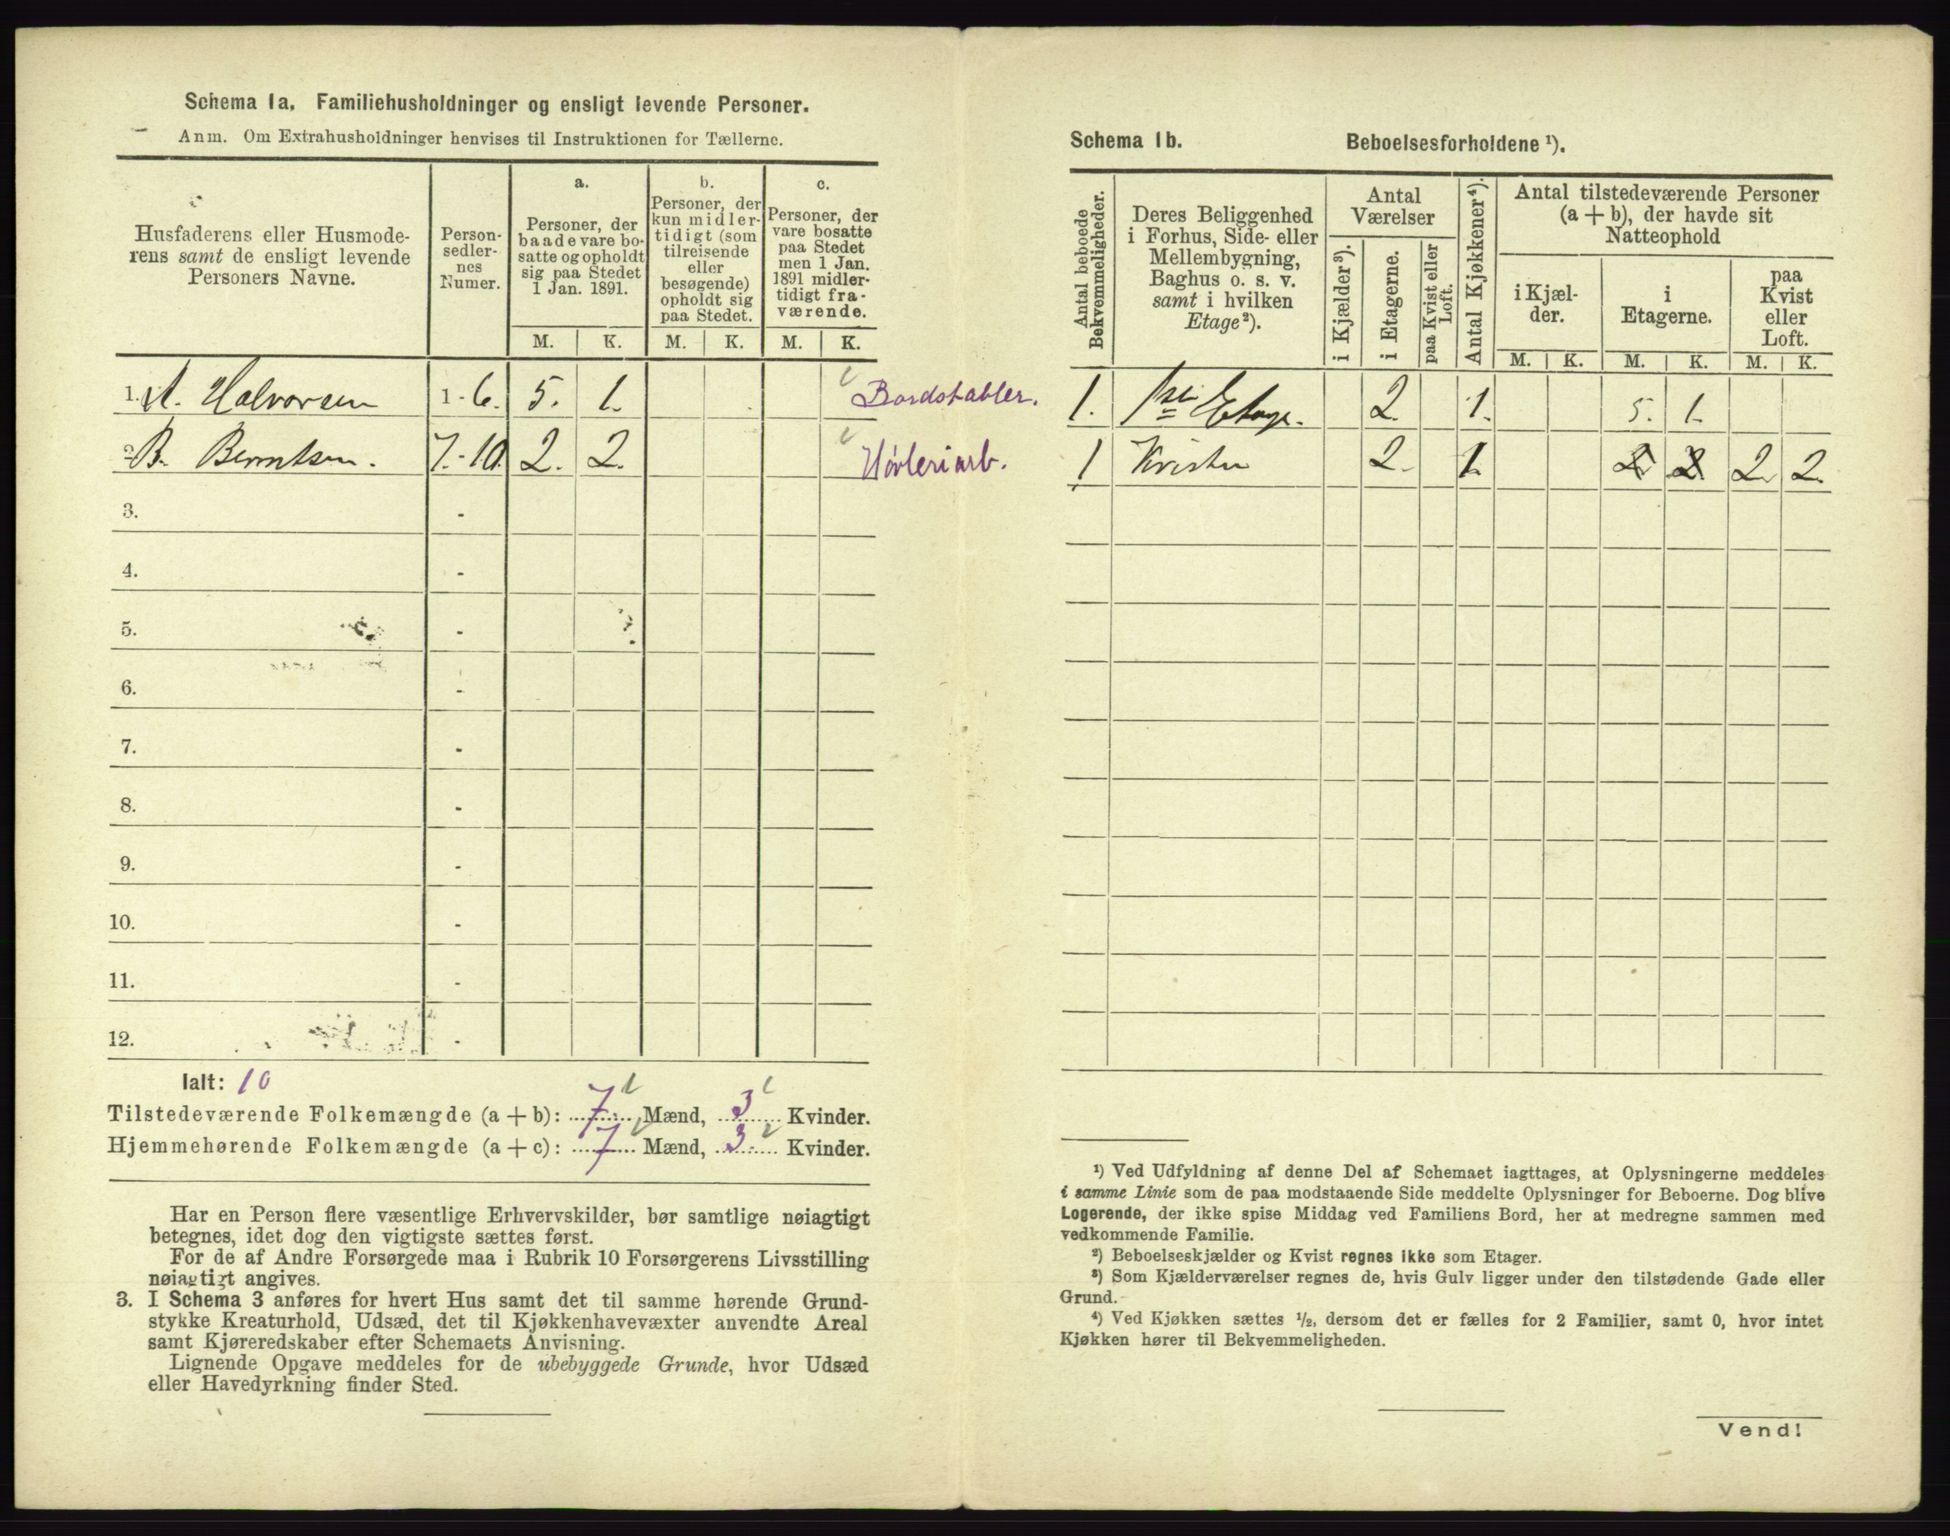 Schema 1a. Familiehusholdninger og ensligt levende Personer.
Anm. Om Extrahusholdninger henvises til Instruktionen for Tællerne.
Husfaderens eller Husmoderens samt de ensligt levende Personers Navne.
Personsedlernes Numer.
a. Personer, der baade vare bosatte og opholdt sig paa Stedet 1 Jan. 1891.
b. Personer, der kun midlertidigt (som tilreisende eller besøgende) opholdt sig paa Stedet.
c. Personer, der vare bosatte paa Stedet men 1 Jan. 1891 midlertidigt fraværende.
M. K. M. K. M. K.
1. A. Halvorsen 1-6. 5. 1. Bordstabler.
2. B. Berntsen. 7.-10. 2. 2. Høvleriarb.
3. -
4. -
5. -
6. -
7. -
8. -
9. -
10. -
11. -
12. -
Ialt: 10
Tilstedeværende Folkemængde (a + b): 7 Mænd, 3 Kvinder.
Hjemmehørende Folkemængde (a + c): 7 Mænd, 3. Kvinder.
Har en Person flere væsentlige Erhvervskilder, bør samtlige nøiagtigt
betegnes, idet dog den vigtigste sættes først.
For de af Andre Forsørgede maa i Rubrik 10 Forsørgerens Livsstilling
nøiagtigt angives.
3. I Schema 3 anføres for hvert Hus samt det til samme hørende Grund-
stykke Kreaturhold, Udsæd, det til Kjøkkenhavevæxter anvendte Areal
samt Kjøreredskaber efter Schemaets Anvisning.
Lignende Opgave meddeles for de ubebyggede Grunde, hvor Udsæd
eller Havedyrkning finder Sted.
Schema 1b. Beboelsesforholdene ¹).
Antal beboede Bekvemmeligheder.
Deres Beliggenhed i Forhus, Side- eller Mellembygning, Baghus o. s. v. samt i hvilken Etage²).
Antal Værelser
i Kjælder³).
i Etagerne.
paa Kvist eller Loft.
Antal Kjøkkener⁴).
Antal tilstedeværende Personer (a + b), der havde sit Natteophold
i Kjælder.
i Etagerne.
paa Kvist eller Loft.
M. K. M. K. M. K.
1. 1ste Etage. 2. 1. 5. 1.
1 Kvisten 2. 1. 2 2 2. 2.
¹) Ved Udfyldning af denne Del af Schemaet iagttages, at Oplysningerne meddeles
i samme Linie som de paa modstaaende Side meddelte Oplysninger for Beboerne. Dog blive
Logerende, der ikke spise Middag ved Familiens Bord, her at medregne sammen med
vedkommende Familie.
²) Beboelseskjælder og Kvist regnes ikke som Etager.
³) Som Kjælderværelser regnes de, hvis Gulv ligger under den tilstødende Gade eller
Grund.
⁴) Ved Kjøkken sættes ½, dersom det er fælles for 2 Familier, samt 0, hvor intet
Kjøkken hører til Bekvemmeligheden.
Vend!